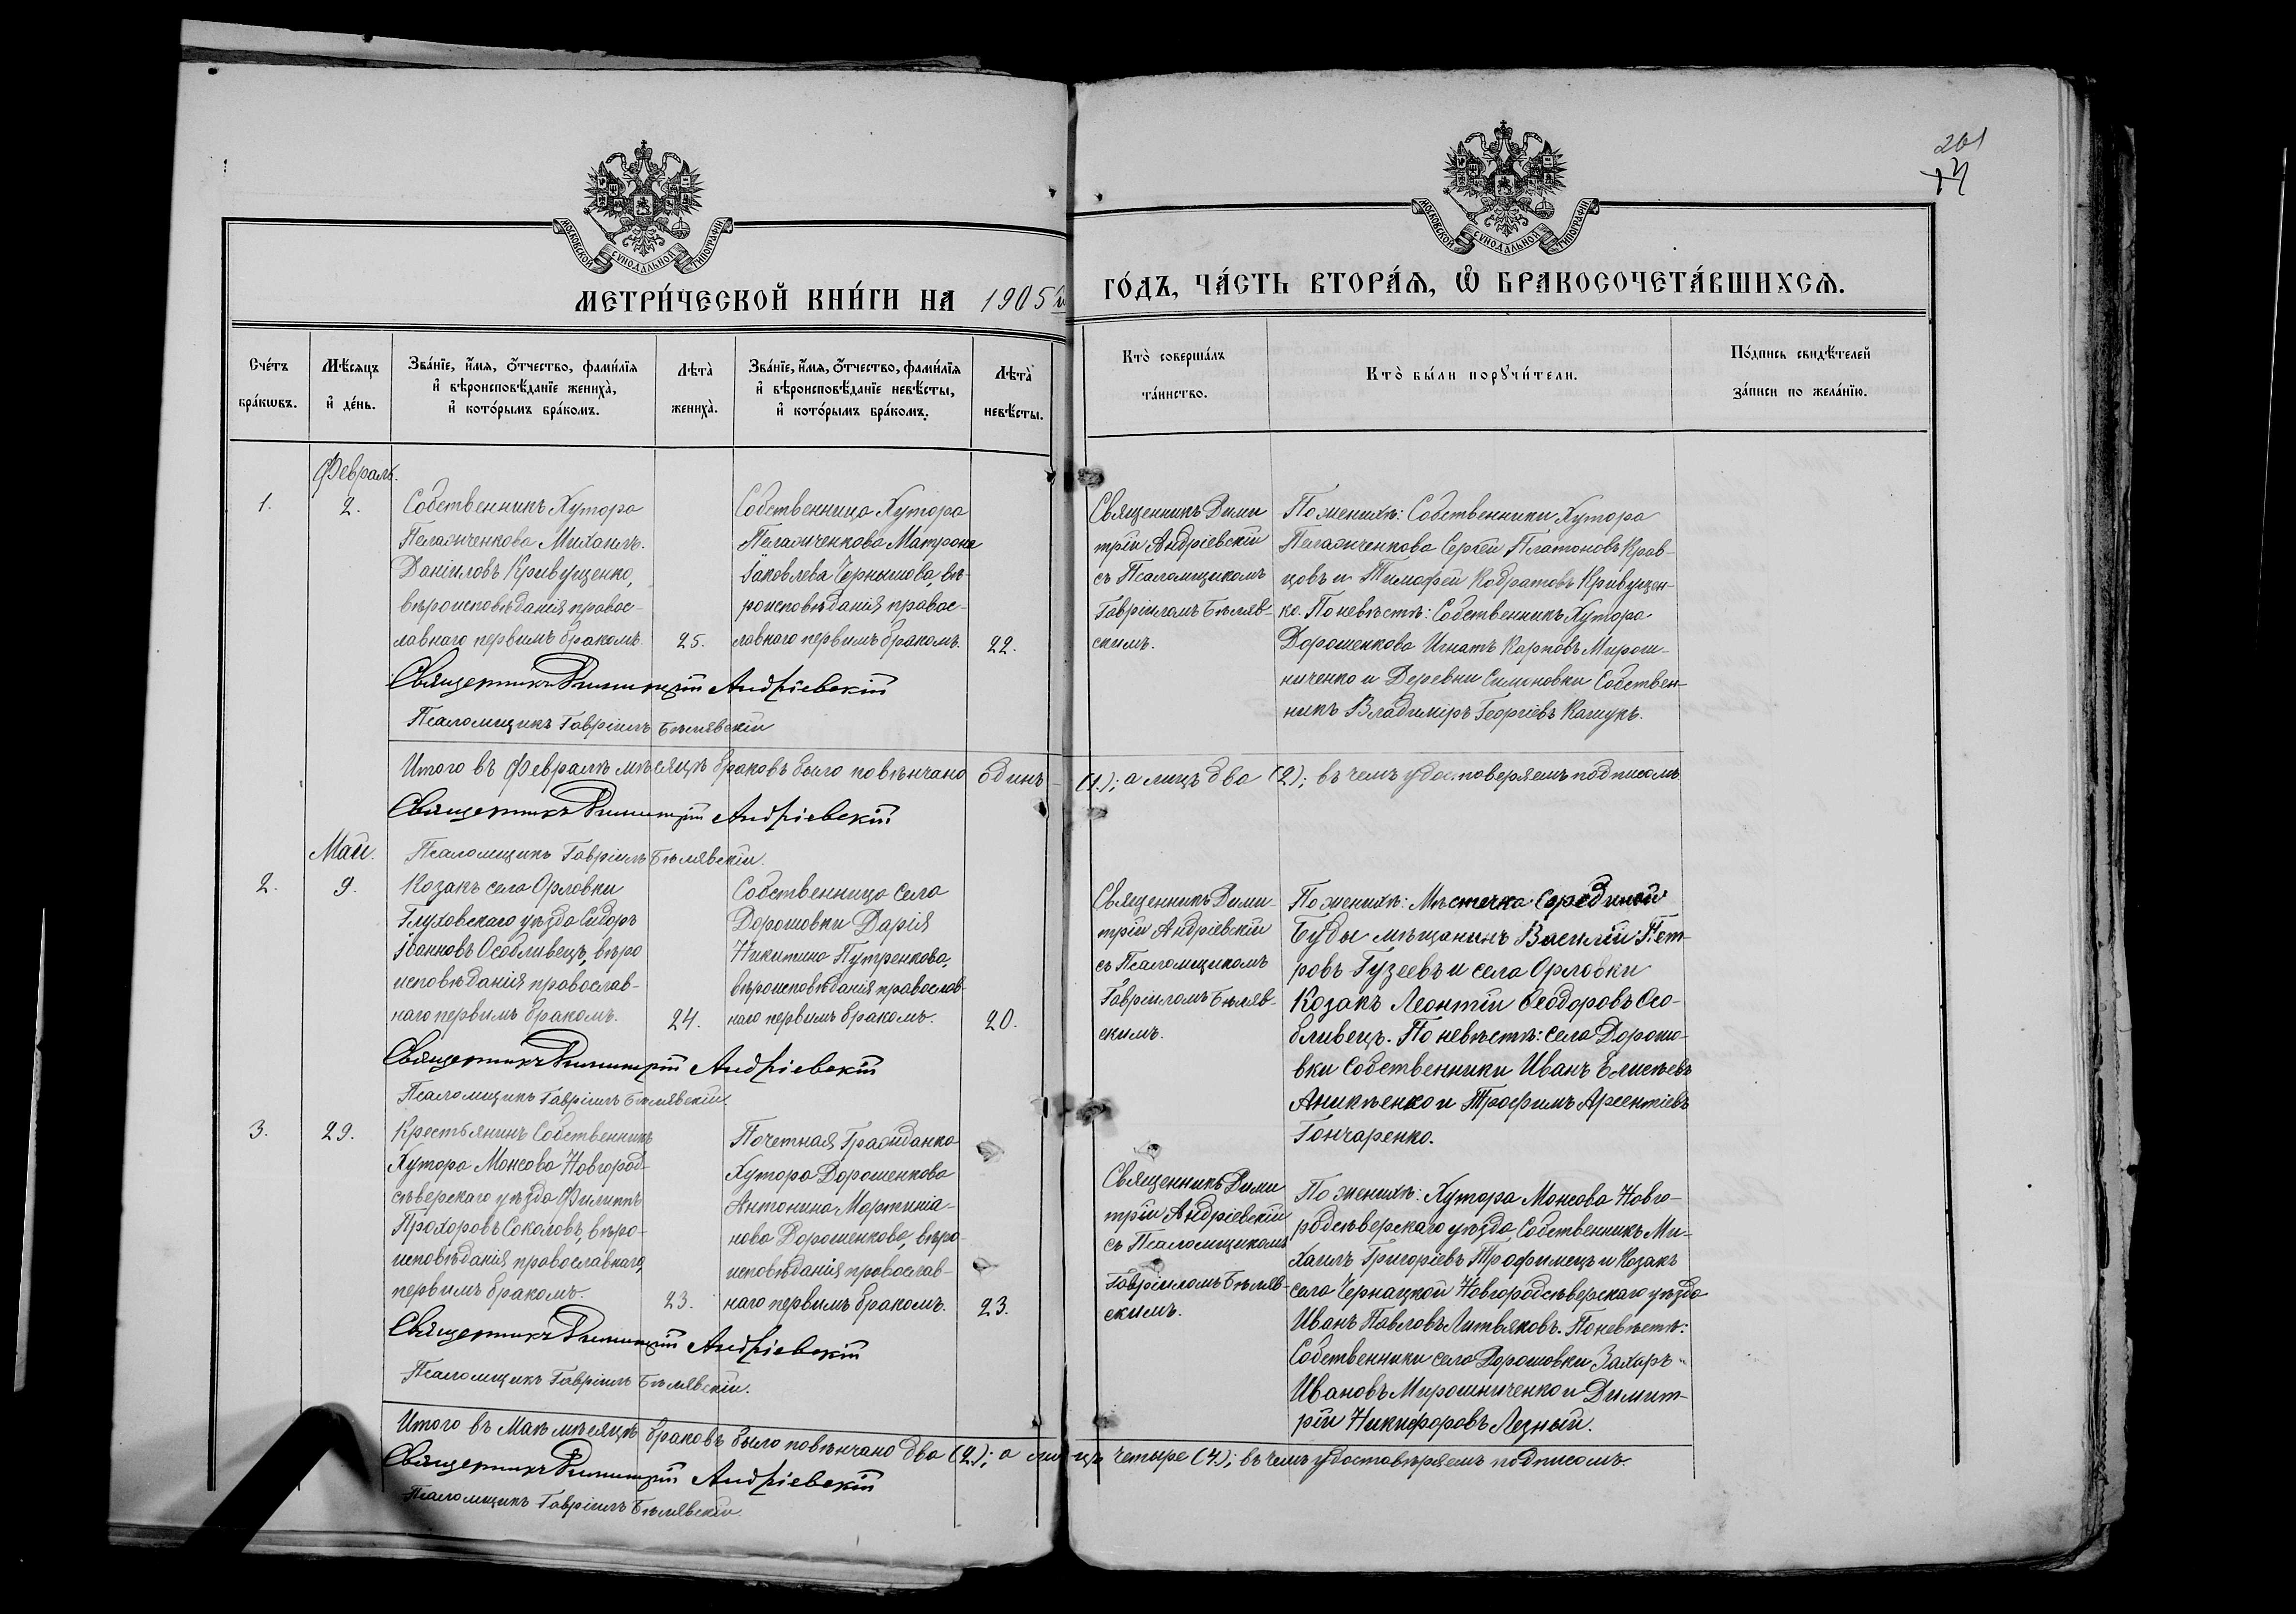 201
13
МОСКОВСКОЙ СУНОДАЛЬНОЙ ТИПОГРАФІИ
МОСКОВСКОЙ СУНОДАЛЬНОЙ ТИПОГРАФІИ
МЕТРИ́ЧЕСКОЙ КНИ́ГИ НА 1905й
ГО́ДЪ, ЧА́СТЬ ВТОРА́Ѧ, Ѿ БРАКОСОЧЕТА́ВШИХСѦ.
Сче́тъ бра́кωвъ.
Мѣ́сяцъ и҆ де́нь.
Зва́нїе, и҆́мѧ, ѻ҆́тчество, фами́лїѧ
и҆ вѣроисповѣ́данїе жениха̀,
и҆ кото́рымъ бра́комъ.
Лѣта̀ жениха̀.
Зва́нїе, и҆́мѧ, ѻ҆́тчество, фами́лїѧ
и҆ вѣроисповѣ́данїе невѣ́сты,
и҆ кото́рымъ бра́комъ.
Лѣта̀ невѣ́сты.
Кто̀ соверша́лъ
та́инство.
Кто̀ бы́ли порꙋчи́тели.
По́дпись свидѣ́телей
за́писи по жела́нїю.
Февраль.
1.
2.
Собственникъ Хутора
Пелагиченкова Михаилъ
Данііловъ Кривущенко,
вѣроисповѣданія правос-
лавнаго первымъ бракомъ.
25.
Собственница Хутора
Пелагиченкова Матрона
Іаковлева Чернышова, вѣ-
роисповѣданія правос-
лавнаго первымъ бракомъ.
22.
Священникъ Дими
трій Андріевскій
съ Псаломщикомъ
Гавріиломъ Бѣляв-
скимъ.
По женихѣ: Собственники Хутора
Пелагиченкова Сергѣй Платоновъ Крав-
цовъ и Тимофей Кодратовъ Кривущен-
ко. По невѣстѣ: Собственникъ Хутора
Дорошенкова Игнатъ Карповъ Мирош-
ниченко и Деревни Симоновки Собствен-
никъ Владиміръ Георгіевъ Кашукъ.
Священникъ Димитрій Андріевскій
Псаломщикъ Гавріилъ Бѣлявскій
Итого въ Февралѣ мѣсяцѣ браковъ было повѣнчано одинъ (1.); а лицъ два (2.); въ чемъ удостоверяемъ подписомъ
Священникъ Димитрій Андріевскій
Псаломщикъ Гавріилъ Бѣлявскій.
Май.
2.
9.
Козакъ села Орловки
Глуховскаго уѣзда Сидоръ
Іоанновъ Особливецъ, вѣро
исповѣданія православ-
наго первымъ бракомъ.
24.
Собственница Села
Дорошовки Дарія
Никитина Путренкова,
вѣроисповѣданія православ-
наго первымъ бракомъ.
20.
Священникъ Дими-
трій Андріевскій
съ Псаломщикомъ
Гавріиломъ Бѣляв-
скимъ.
По женихѣ: Мѣстечка Середина
Буды мѣщанинъ Василій Пет-
ровъ Гузеевъ и села Орловки
Козакъ Леонтій Ѳеодоровъ Осо-
бливецъ. По невѣстѣ: села Дорошо-
вки Собственники Иванъ Елисѣевъ
Аникѣенко и Трофимъ Арсентіевъ
Гончаренко.
Священникъ Димитрій Андріевскій
Псаломщикъ Гавріилъ Бѣлявскій.
3.
29.
Крестьянинъ Собственникъ
Хутора Монсова Новгород-
сѣверскаго уѣзда Филиппъ
Прохоровъ Соколовъ, вѣро-
исповѣданія православнаго,
первымъ бракомъ.
23.
Почетная Гражданка
Хутора Дорошенкова
Антонина Мартиніа-
нова Дорошенкова, вѣро-
исповѣданія православ-
наго первымъ бракомъ.
23.
Священникъ Дими
трій Андріевскій
съ Псаломщикомъ
Гавріиломъ Бѣляв-
скимъ.
По женихѣ: Хутора Монсова Новго-
родсѣверскаго уѣзда, Собственникъ Ми-
хаилъ Григоріевъ Трофимецъ и Козакъ
села Чернацкой Новгородсѣверскаго уѣзда
Иванъ Павловъ Литвяковъ. По невѣстѣ:
Собственники села Дорошовки Захаръ
Ивановъ Мирошниченко и Димит-
рій Никифоровъ Лезный.
Священникъ Димитрій Андріевскій
Псаломщикъ Гавріилъ Бѣлявскій.
Итого въ Маѣ мѣсяцѣ браковъ было повѣнчано два (2.); а лицъ четыре (4.); въ чемъ удостовѣряемъ подписомъ.
Священникъ Димитрій Андріевскій
Псаломщикъ Гавріилъ Бѣлявскій.